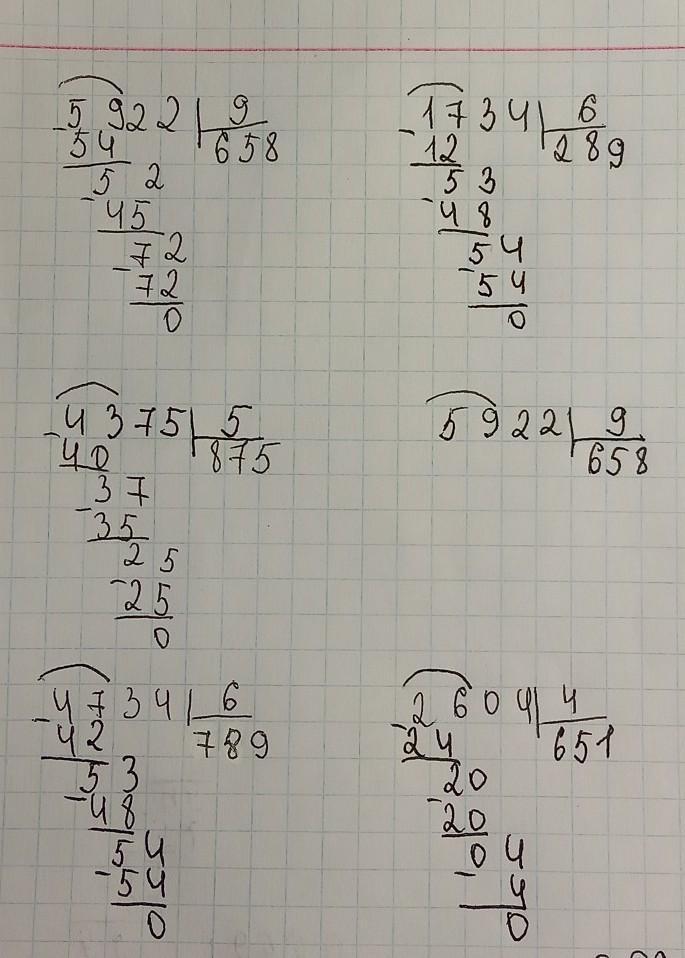 5922 | 9
54 658
52
- 45
72
- 72
0
- 1734 | 6
12 289
53
- 48
54
- 54
0
- 4375 | 5
40 875
37
- 35
25
- 25
0
5922 | 9
658
- 4734 | 6
42 789
53
- 48
54
- 54
0
- 2604 | 4
24 651
20
- 20
04
- 4
0